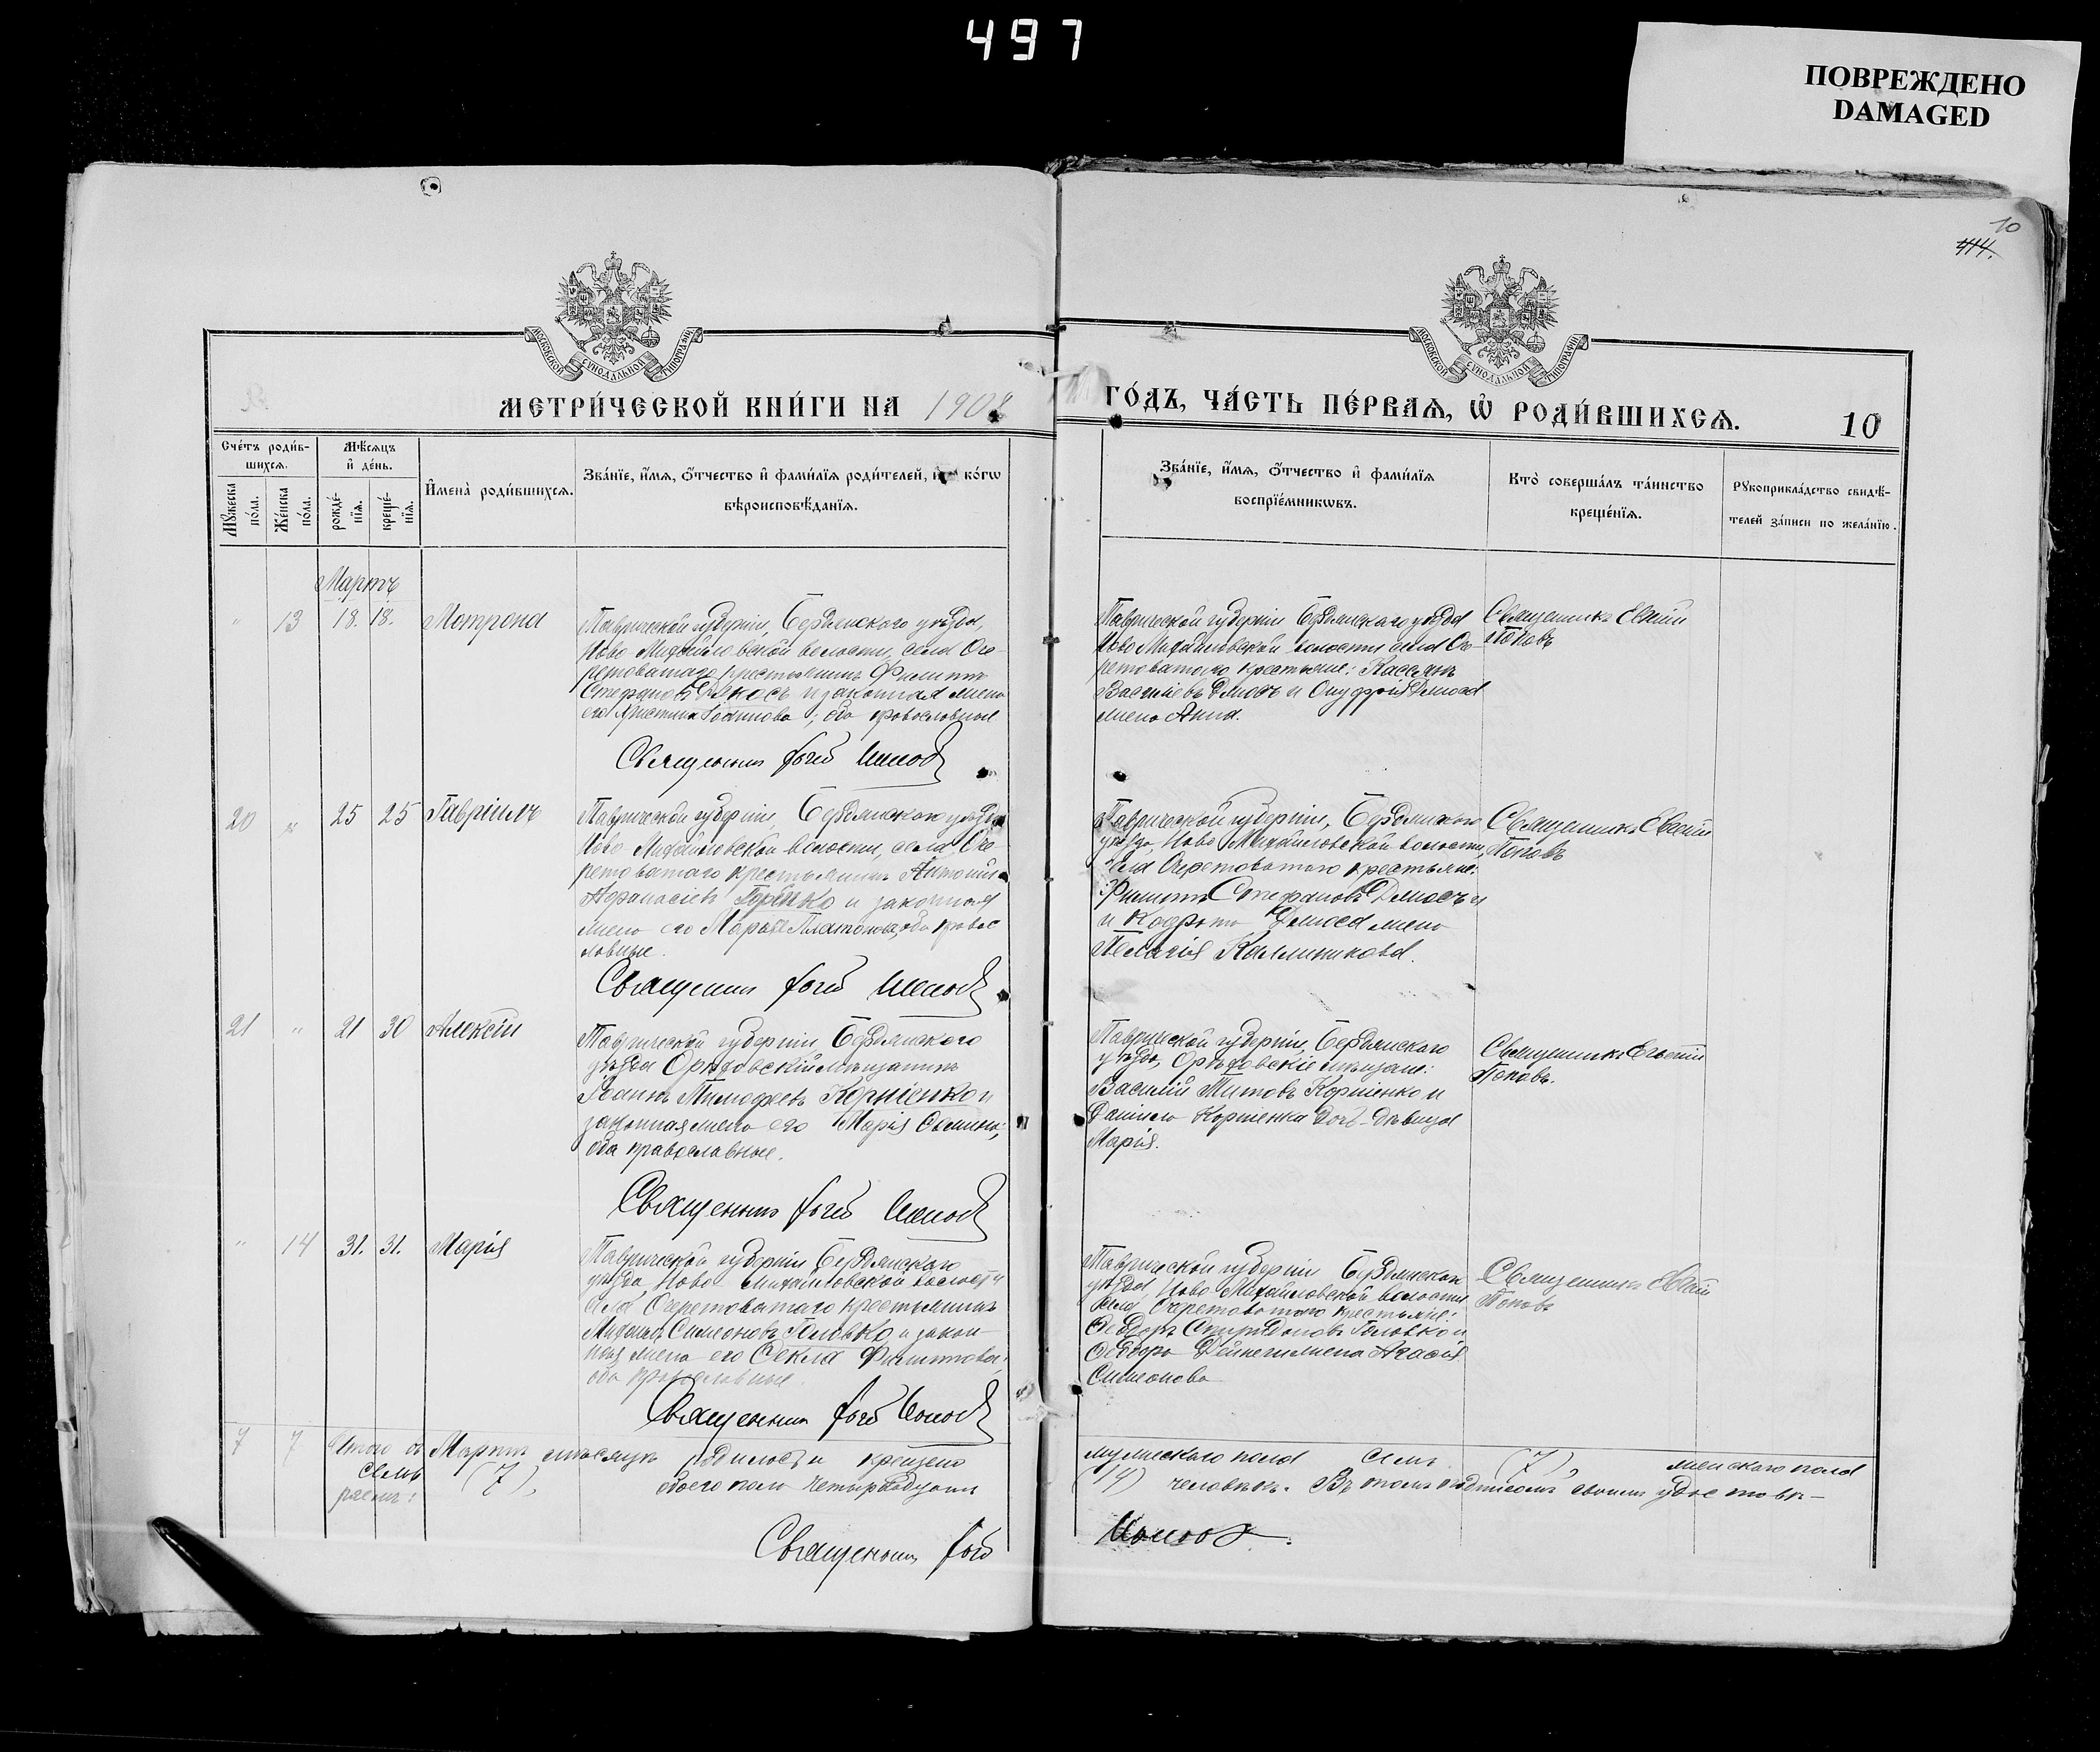 497
ПОВРЕЖДЕНО
DAMAGED
10
414.
МОСКОВСКОЙ СѴНОДАЛЬНОЙ ТИПОГРАФІИ
МОСКОВСКОЙ СѴНОДАЛЬНОЙ ТИПОГРАФІИ
МЕТРИ́ЧЕСКОЙ КНИ́ГИ НА 1908
ГО́ДЪ, ЧА́СТЬ ПЕ́РВАѦ, Ѡ҆ РОДИ́ВШИХСѦ.
10
Сче́тъ роди́в-
шихсѧ.
Мꙋ́жеска
по́ла.
Же́нска
по́ла.
Мѣ́сѧцъ
и҆ де́нь.
рожде́-
нїѧ.
креще́-
нїѧ.
И҆мена̀ роди́вшихсѧ.
Зва́нїе, и҆́мѧ, ѻ҆́тчество и҆ фами́лїѧ роди́телей, и҆ ко́гѡ
вѣроисповѣ́данїѧ.
Зва́нїе, и҆́мѧ, ѻ҆́тчество и҆ фами́лїѧ
воспрїе́мникѡвъ.
Кто̀ соверша́лъ та́инство
креще́нїѧ.
Рꙋкоприкла́дство свидѣ́-
телей за́писи по жела́нїю.
Мартъ
" 13 18. 18. Мотрона
Таврической губерніи, Бердянского уѣзда,
Ново Михайловской волости, села Оче-
ретоватаго крестьянинъ Филиппъ
Стефановъ и законная жена
его Христина; оба православные
Священникъ Попов
Таврической губерніи Бердянскаго уѣзда
Ново Михайловской волости села Оче-
ретоватого крестьяне: Кассіанъ
Васильевъ и Онуфрія
жена Анна.
Священникъ Евгеній
Поповъ
20 " 25 25 Гавріилъ
Таврической губерніи, Бердянского уѣзда
Ново Михайловской волости, села Оче-
ретоватого крестьянинъ Антоній
Афанасіевъ и законная
жена его Марія Платонова, оба правос
лавные.
Священникъ Попов
Таврической губерніи, Бердянского
уѣзда, Ново Михайловской волости,
села Очеретоватого крестьяне:
Филиппъ Стефановъ и
и жена
Пелагія Каллиникова.
Священникъ Евгеній
Поповъ
21 " 21 30 Алексій
Таврической губерніи Бердянского
уѣзда Орѣховскій мѣщанинъ
Іоаннъ Тимофеевъ Корніенко и
законная жена его Марія;
оба православные.
Священникъ Попов
Таврической губерніи, Бердянского
уѣзда, Орѣховскіе мѣщане:
Василій Титовъ Корніенко и
Даніила Корніенка дочь-дѣвица
Марія.
Священникъ Евгеній
Поповъ.
" 14 31. 31. Марія
Таврической губерніи Бердянского
уѣзда Ново Михайловской волости
села Очеретоватаго крестьянинъ
Михаилъ Симеоновъ Головко и закон-
ная жена его Ѳекла Филиппова;
оба православные.
Священникъ Попов
Таврической губерніи Бердянскаго
уѣзда, Ново Михайловской волости
села Очеретоватого крестьяне:
Ѳеодоръ Спиридоновъ Головко и
Ѳеодора жена Агафія
Симеонова
Священникъ Евгеній
Поповъ
7 7 Итого въ Мартѣ мѣсяцѣ родилось и крещено
мужескаго пола семь (7), женскаго пола
семь (7), обоего пола четырнадцать
(14) человѣкъ. Въ томъ подписомъ своимъ удостовѣ-
ряемъ:
Священникъ
Попов.